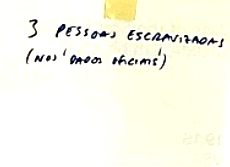 3 PESSOAS ESCRAVIZADAS
(NOS 'DADOS OFICIAIS')